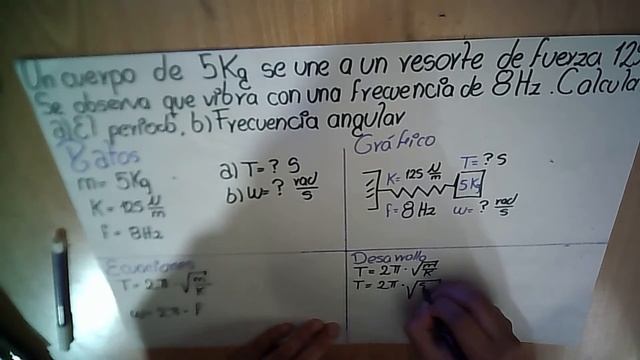 Un cuerpo de 5Kg se une a un resorte de fuerza
Se observa que vibra con una frecuencia de 8Hz. Calcula
a) El periodo, b) Frecuencia angular
Datos
m= 5Kg
K= 125 N/m
f= 8Hz
a) T=? S
b) w=? rad/s
Gráfico
T=? S
K= 125 N/m
5Kg
f= 8Hz
w=? rad/s
Ecuaciones
T= 2π · √m/K
w= 2π · f
Desarrollo
T= 2π · √m/K
T= 2π · √